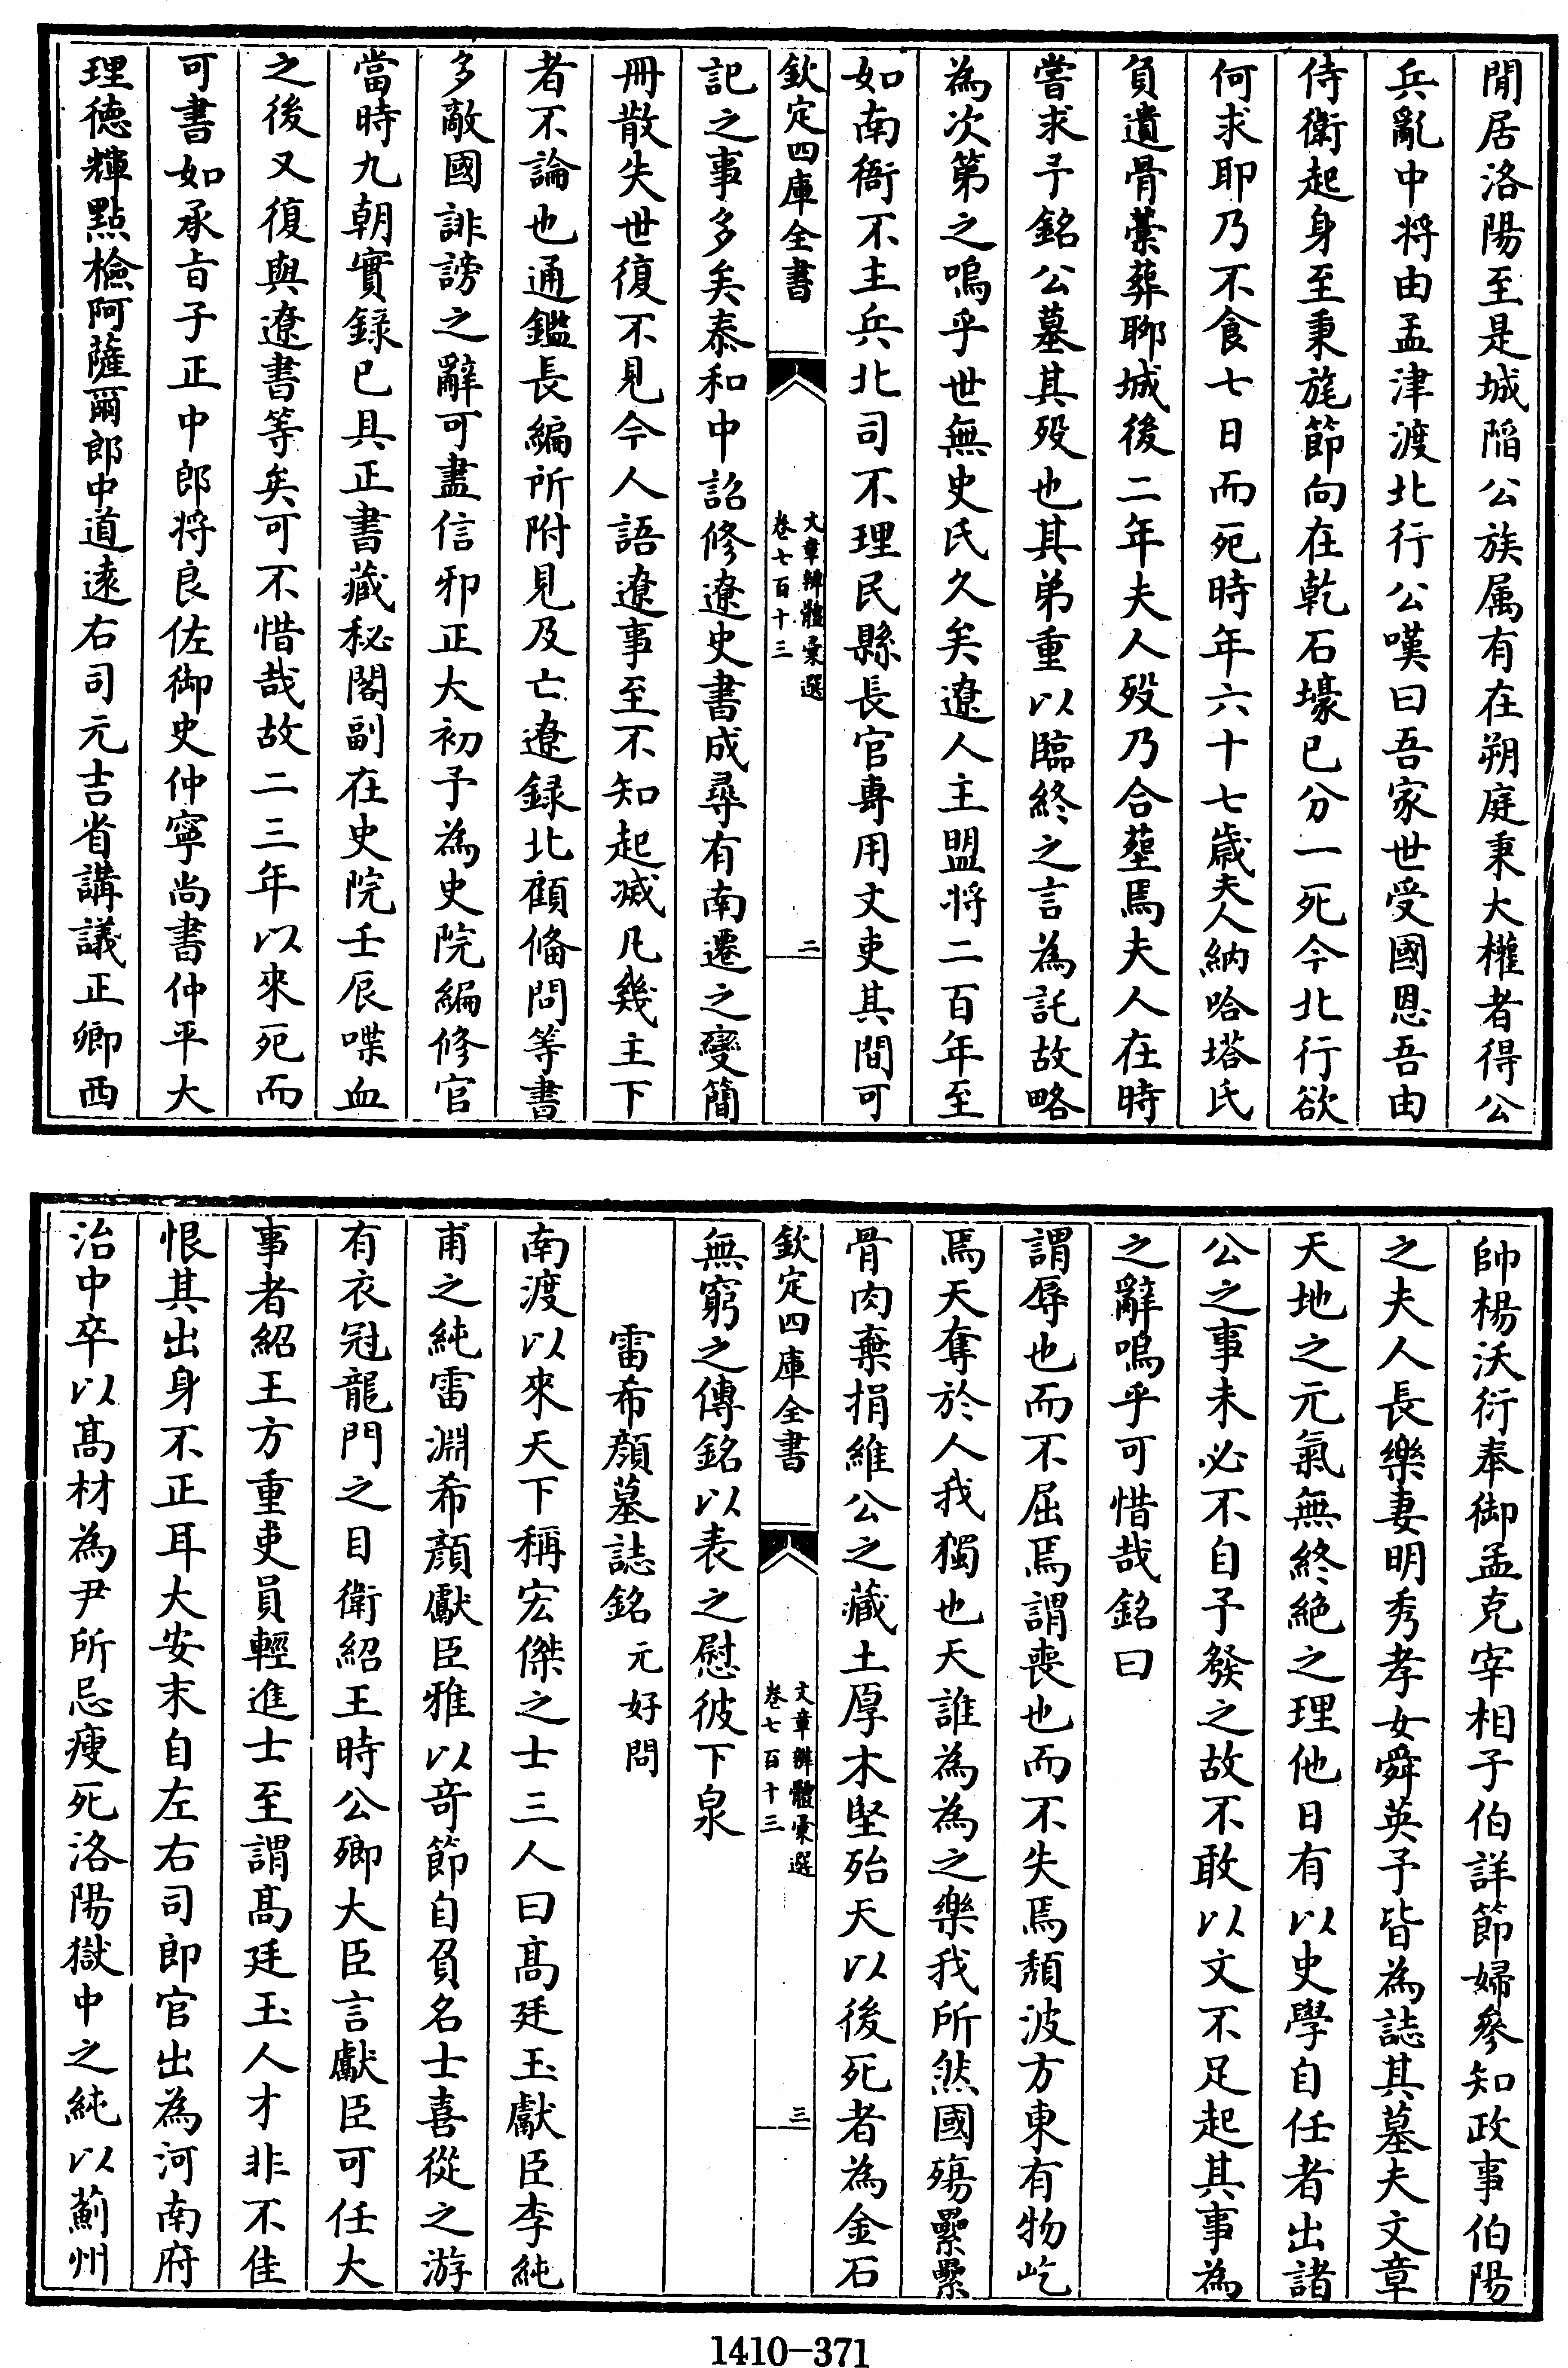 閒居洛陽至是城陷公族属有在朔庭秉大權者得公
兵亂中将由孟津渡北行公嘆曰吾家世受國恩吾由
侍衛起身至秉旄節向在乾石壕已分一死今北行欲
何求耶乃不食七日而死時年六十七歲夫人納哈塔氏
負遺骨藁葬聊城後二年夫人歿乃合塟焉夫人在時
嘗求予銘公墓其歿也其弟重以臨終之言為託故略
為次第之嗚乎世無史氏久矣遼人主盟将二百年至
如南衙不主兵北司不理民縣長官專用文吏其間可
欽定四庫全書
文章辨體彙選
卷七百十三
二
記之事多矣泰和中詔修遼史書成尋有南遷之變簡
冊散失世復不見今人語遼事至不知起滅凡幾主下
者不論也通鑑長編所附見及亡遼録北顧俻問等書
多敵國誹謗之辭可盡信邪正大初予為史院編修官
當時九朝實録已具正書藏秘閣副在史院壬辰喋血
之後又復與遼書等矣可不惜哉故二三年以來死而
可書如承旨子正中郎将良佐御史仲寧尚書仲平大
理德輝點檢阿薩爾郎中道逺右司元吉省講議正卿西
帥楊沃衍奉御孟克宰相子伯詳節婦參知政事伯陽
之夫人長樂妻明秀孝女舜英予皆為誌其墓夫文章
天地之元氣無終絶之理他日有以史學自任者出諸
公之事未必不自予發之故不敢以文不足起其事為
之辭嗚乎可惜哉銘曰
謂辱也而不屈焉謂喪也而不失焉頽波方東有物屹
焉天奪於人我獨也天誰為為之樂我所然國殤纍纍
骨肉棄捐維公之藏土厚木堅殆天以後死者為金石
欽定四庫全書
文章辨體彙選
卷七百十三
三
無窮之傳銘以表之慰彼下泉
雷希顔墓誌銘 元好問
南渡以來天下稱宏傑之士三人曰髙廷玉獻臣李純
甫之純雷淵希顔獻臣雅以竒節自負名士喜從之游
有衣冠龍門之目衛紹王時公卿大臣言獻臣可任大
事者紹王方重吏員輕進士至謂髙廷玉人才非不佳
恨其出身不正耳大安末自左右司郎官出為河南府
治中卒以髙材為尹所忌瘦死洛陽獄中之純以薊州
1410-371